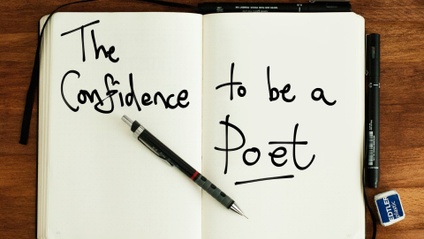 The
Confidence
to be a
Poet